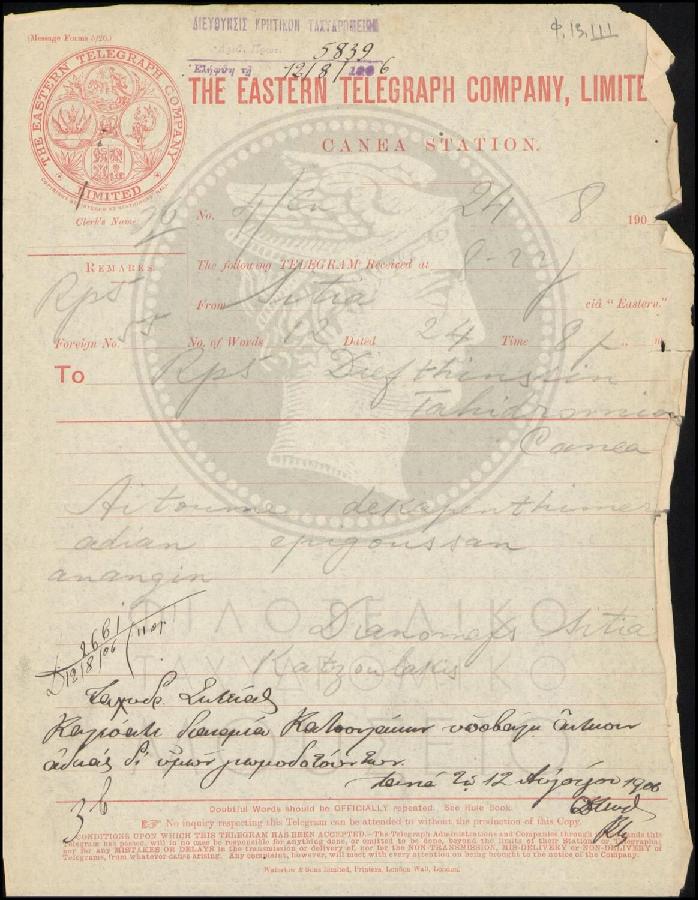 (Message Forms 5/26.)
ΔΙΕΥΘΥΝΣΙΣ ΚΡΗΤΙΚΩΝ ΤΑΧΥΔΡΟΜΕΙΩΝ
Αριθ. Πρωτ. 5839
Ελήφθη τῇ 12/8/1906
Φ. 13. III
THE EASTERN TELEGRAPH COMPANY, LIMITE
THE EASTERN TELEGRAPH COMPANY LIMITED
CANEA STATION.
Clerk's Name
No. 4/ 24 8 190
REMARKS.
The following TELEGRAM Received at
Rps
From Sitia viâ "Eastern."
Foreign No. 55 No. of Words 12 Dated 24 Time 8
To Rps Diefthinsin
Tahidromion
Canea
Aitoume dekapenthimer
adian epigoussan
anangin
Dianomefs Sitia
Katzoulakis
ΦΙΛΟΤΕΛΙΚΟ
ΤΑΧΥΔΡΟΜΙΚΟ
ΜΟΥΣΕΙΟ
2661
12/8/06
Ταχυδρ. Σητείας
διανομέα Κατσουλάκην ὑποβάλῃ αἴτησιν
ἀδείας δι' ὑμῶν γνωμοδοτούντων
12 Αὐγούστου 1906
Doubtful Words should be OFFICIALLY repeated. See Rule Book.
☞ No inquiry respecting this Telegram can be attended to without the production of this Copy.
CONDITIONS UPON WHICH THIS TELEGRAM HAS BEEN ACCEPTED.—The Telegraph Administrations and Companies through whose hands this
Telegram has passed, will in no case be responsible for anything done, or omitted to be done, beyond the limits of their Stations or Telegraphs
nor for any MISTAKES OR DELAYS in the transmission or delivery of, nor for the NON-TRANSMISSION, MIS-DELIVERY or NON-DELIVERY of
Telegrams, from whatever cause arising. Any complaint, however, will meet with every attention on being brought to the notice of the Company.
Waterlow & Sons Limited, Printers, London Wall, London.